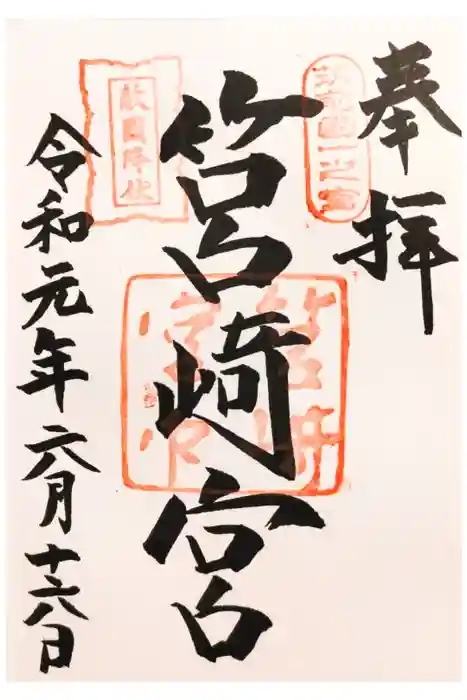 奉拝
筑前國一之宮
筥崎宮
筥崎
宮印
敵國降伏
令和元年六月十六日